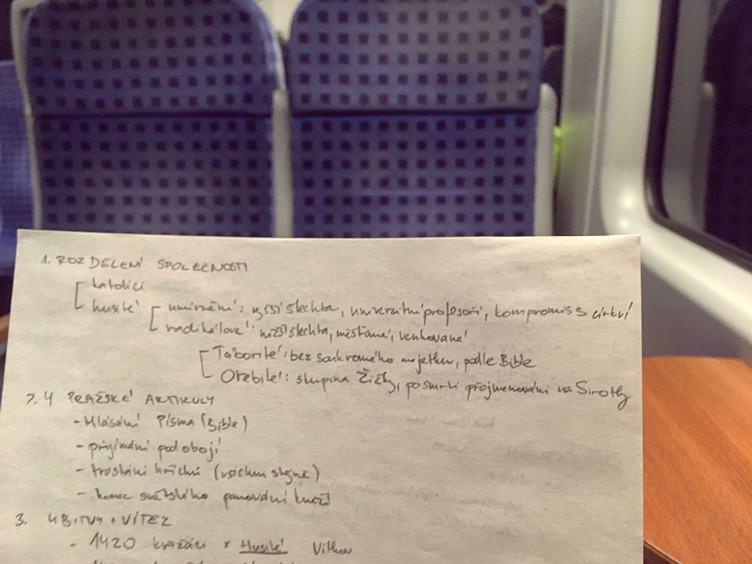 1. ROZDĚLENÍ SPOLEČNOSTI
katolíci
husité
umírnění: vyšší šlechta, univerzitní profesoři, kompromis s církví
radikálové: nižší šlechta, měšťané, venkované
Táborité: bez soukromého majetku, podle Bible
Orebité: skupina Žižky, po smrti přejmenováni na Sirotky
2. 4 PRAŽSKÉ ARTIKULY
- Hlásání Písma (Bible)
- přijímání podobojí
- trestání hříchů (všichni stejně)
- konec světského panování kněží
3. 4 BITVY + VÍTĚZ
- 1420 křižáci x Husité Vítkov